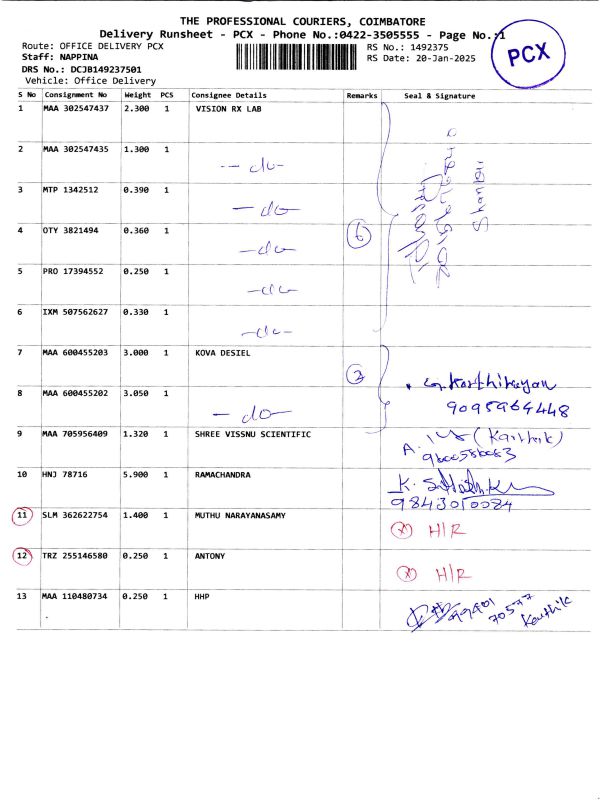 THE PROFESSIONAL COURIERS, COIMBATORE
Delivery Runsheet - PCX - Phone No.:0422-3505555 - Page No.:1
Route: OFFICE DELIVERY PCX
RS No.: 1492375
Staff: NAPPINA
RS Date: 20-Jan-2025
DRS No.: DCJB149237501
Vehicle: Office Delivery
PCX
S No Consignment No Weight PCS Consignee Details Remarks Seal & Signature
1 MAA 302547437 2.300 1 VISION RX LAB
2 MAA 302547435 1.300 1 -do-
3 MTP 1342512 0.390 1 -do-
4 OTY 3821494 0.360 1 -do- 6
5 PRO 17394552 0.250 1 -do-
6 IXM 507562627 0.330 1 -do-
7 MAA 600455203 3.000 1 KOVA DESIEL
G. Karthikeyan
8 MAA 600455202 3.050 1 -do- 9095964448
9 MAA 705956409 1.320 1 SHREE VISSNU SCIENTIFIC (Karthik)
10 HNJ 78716 5.900 1 RAMACHANDRA
9843050084
11 SLM 362622754 1.400 1 MUTHU NARAYANASAMY
H/R
12 TRZ 255146580 0.250 1 ANTONY
H/R
13 MAA 110480734 0.250 1 HHP
70577
Karthik